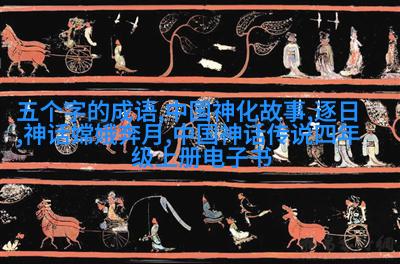 五个字的成语,中国神化故事,逐日
,神话嫦娥奔月,中国神话传说四年
级上册电子书